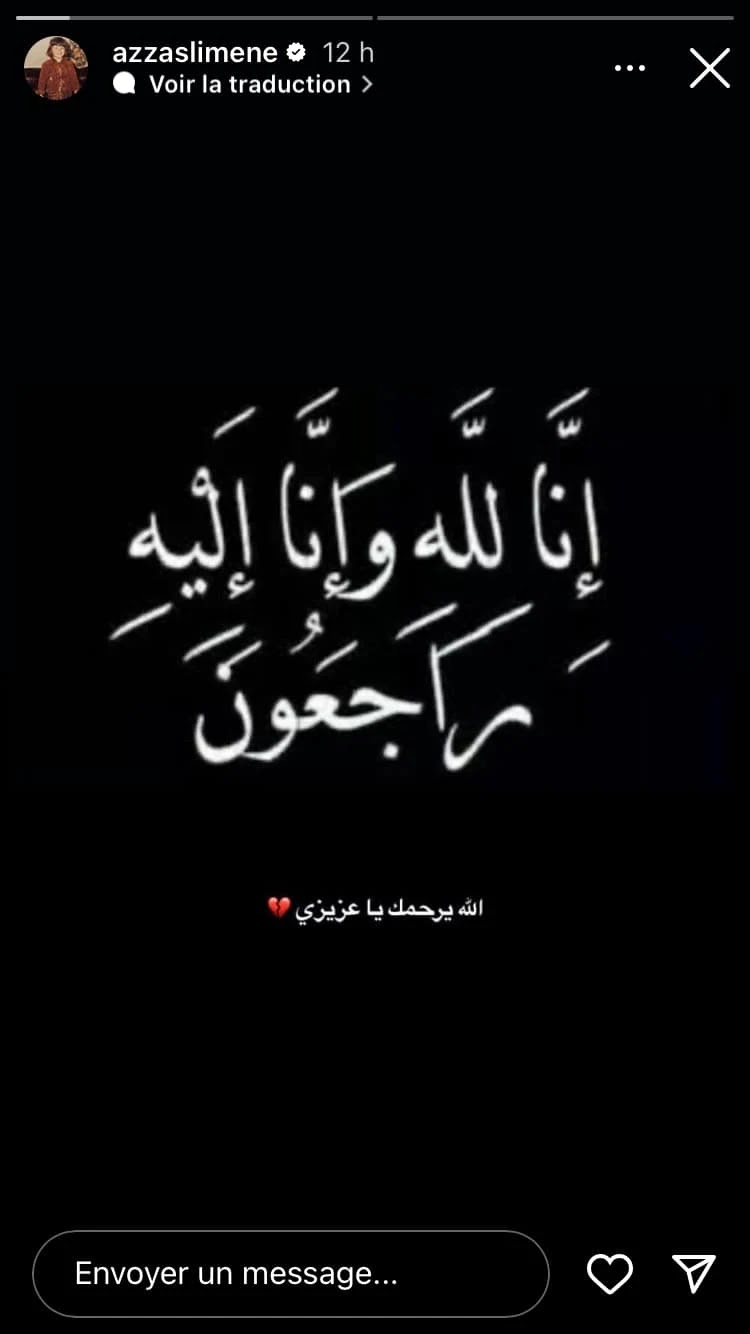 azzaslimene 12 h
Voir la traduction
إِنَّا لِلَّهِ وَإِنَّا إِلَيْهِ
رَاجَعُونَ
الله يرحمك يا عزيزي 💔
Envoyer un message...